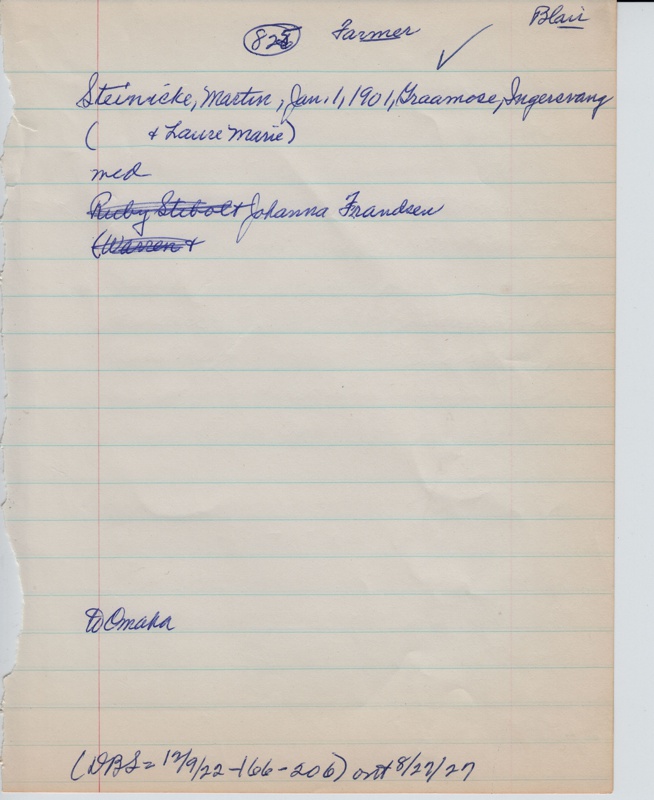 Farmer Blair
Steinicke, Martin, Jan. 1, 1901, Graamose, Ingersvang
( + Laure Marie)
med
Ruby Stibolt Johanna Frandsen
(Warren +
to Omaha
(DBS = 12/9/22 - 166 - 206) out 8/27/27